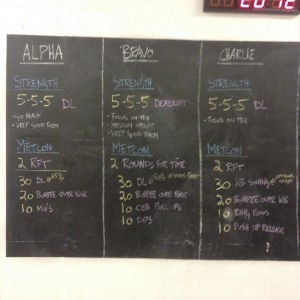 ALPHA
STRENGTH
5-5-5 DL
- GO HEAVY
- KEEP GOOD FORM
METCON
2 RFT
30 DL
20 BURPEE OVER BAR
10 MU'S
BRAVO
STRENGTH
5-5-5 DEADLIFT
- FOCUS ON FORM
- MEDIUM WEIGHT
- KEEP GOOD FORM
METCON
2 ROUNDS FOR TIME
30 DL
20 BURPEE OVER BAR
10 C2B PULL-UPS
10 DIPS
CHARLIE
STRENGTH
5-5-5 DL
- FOCUS ON FORM
METCON
2 RFT
30 KB SWING
20 BURPEE OVER KB
10 RING ROWS
10 PUSH UP RELEASE